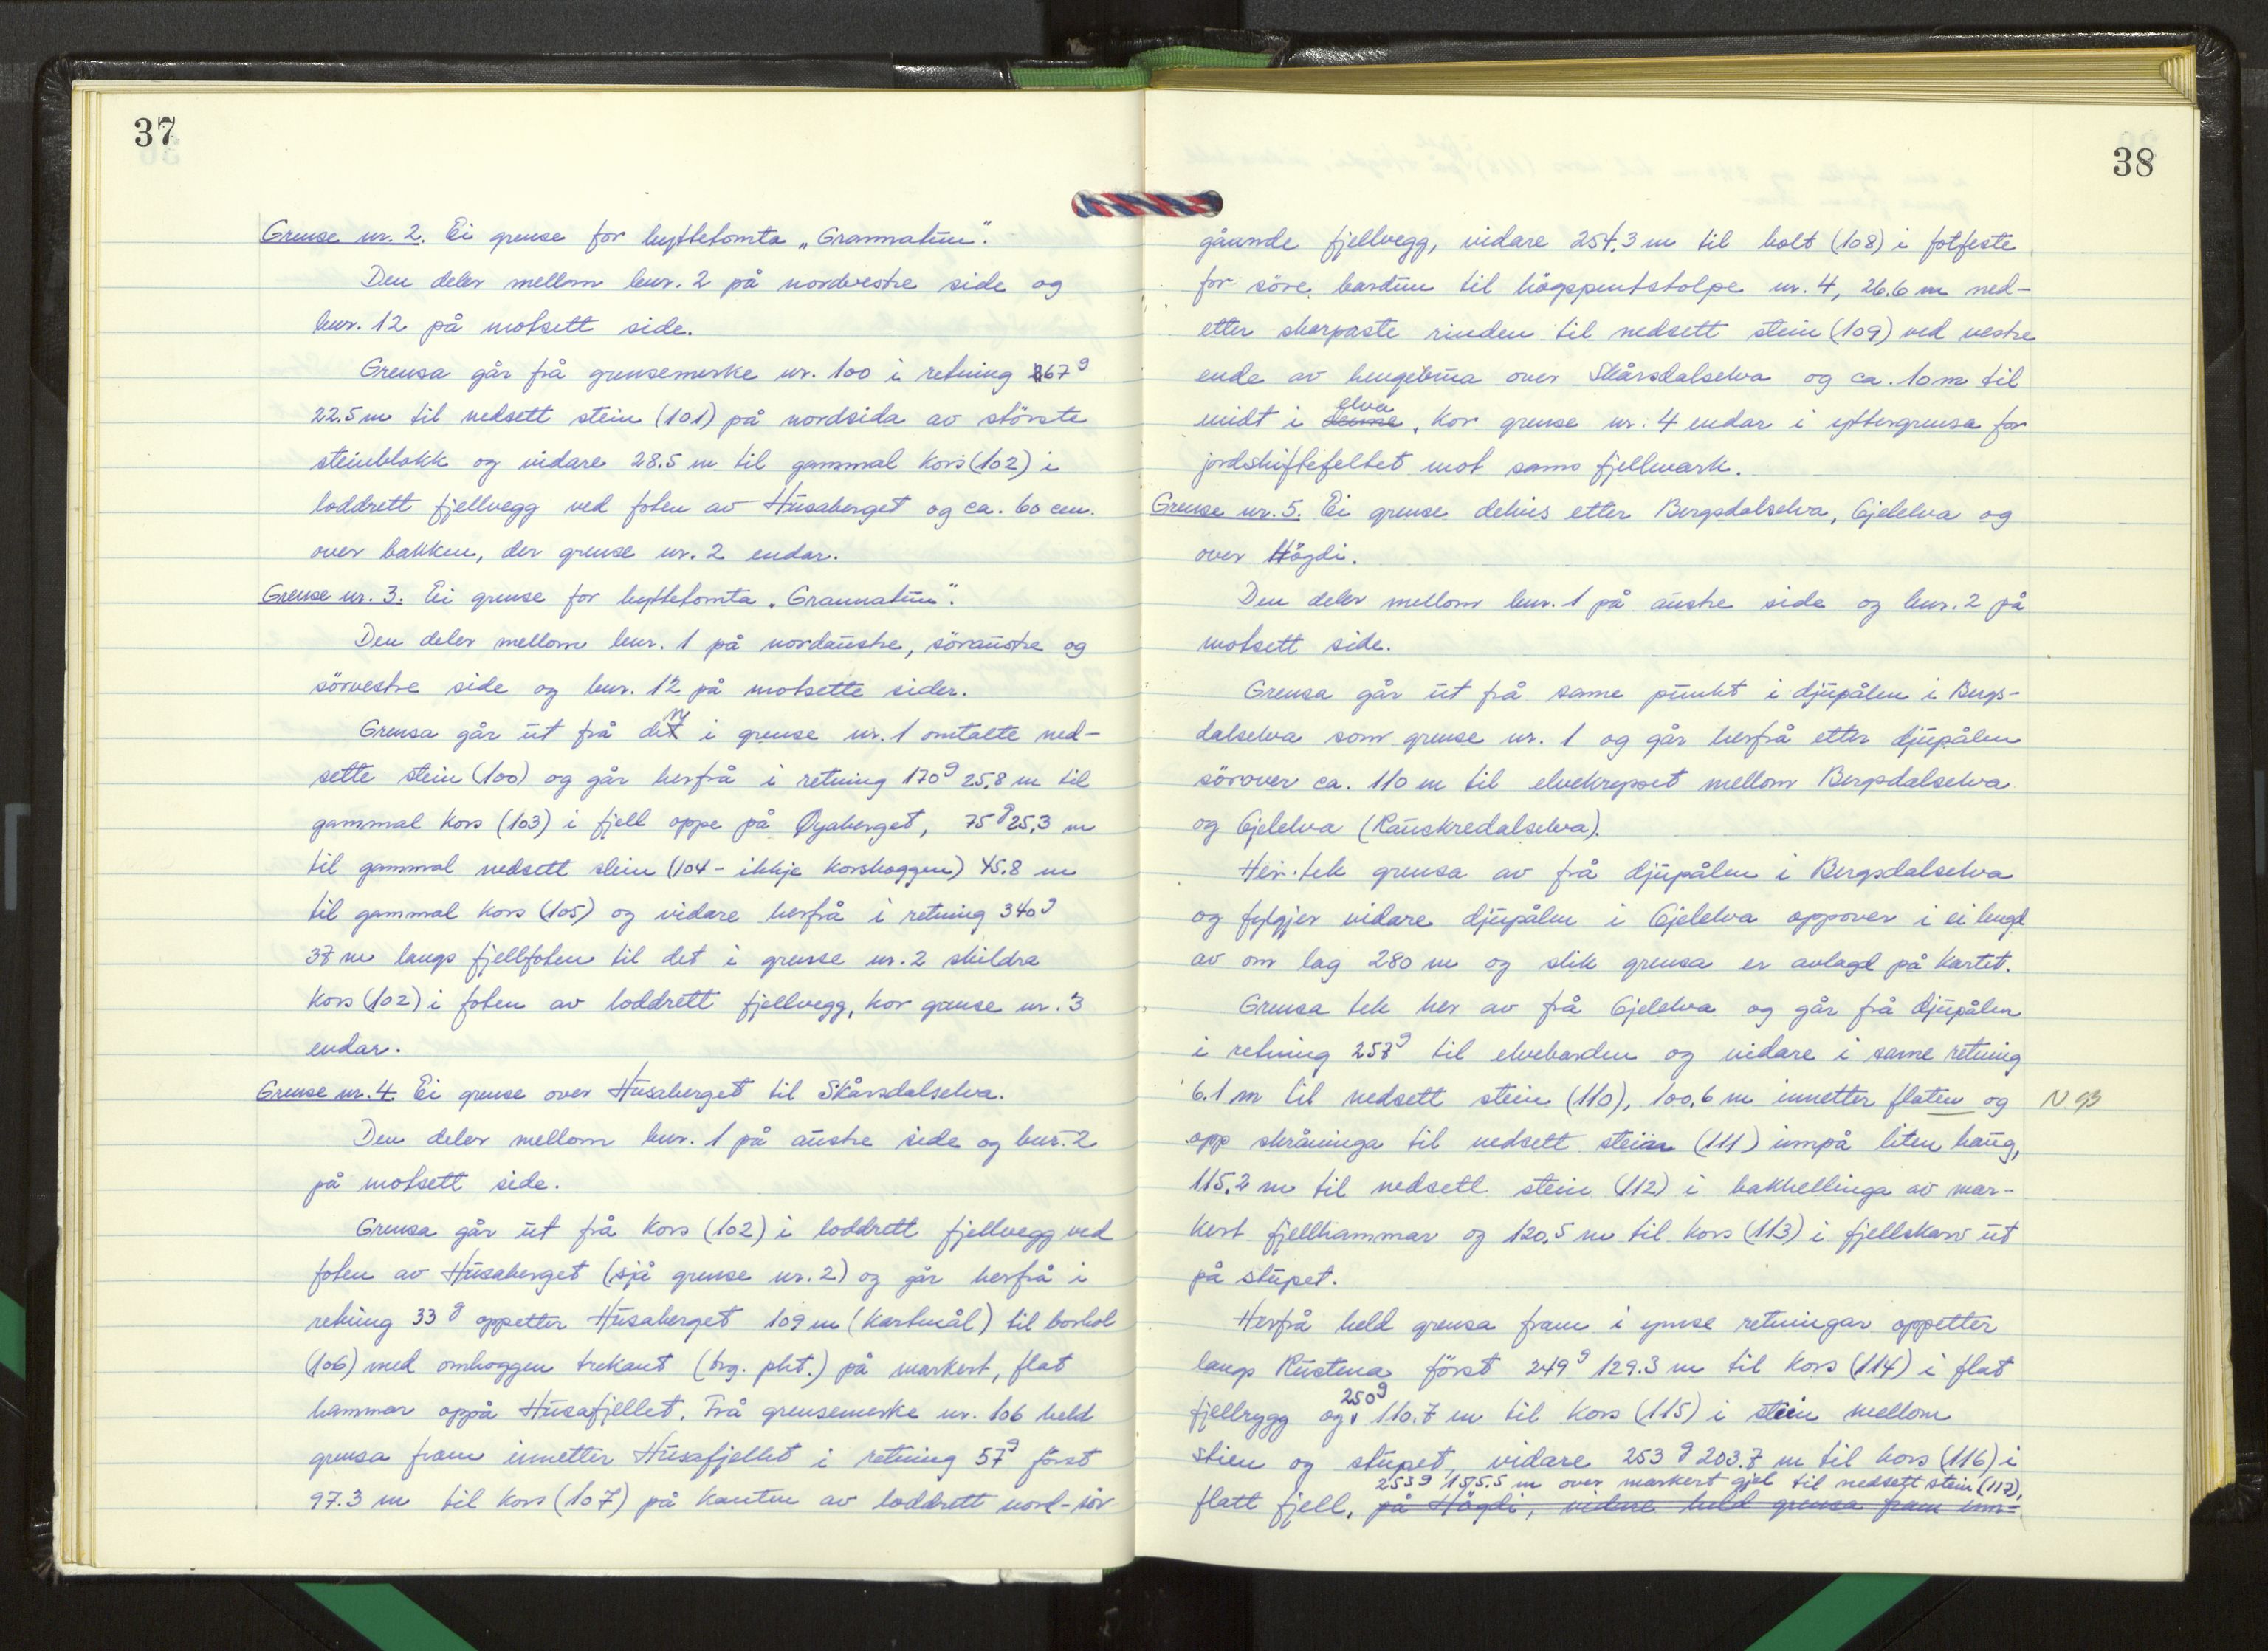 37
Grense nr. 2. Ei grense for hyttetomta „Grannatun".
Den deler mellom bnr. 2 på nordvestre side og
bnr. 12 på motsett side.
Grensa går frå grensemerke nr. 100 i retning 167g
22.5 m til nedsett stein (101) på nordsida av største
steinblokk og vidare 28.5 m til gammal kors (102) i
loddrett fjellvegg ved foten av Husaberget og ca. 60 cm.
over bakken, der grense nr. 2 endar.
Grense nr. 3. Ei grense for hyttetomta „Grannatun".
Den deler mellom bnr. 1 på nordaustre, søraustre og
sørvestre side og bnr. 12 på motsette sider.
Grensa går ut frå den i grense nr. 1 omtalte ned-
sette stein (100) og går herfrå i retning 170g 25,8 m til
gammal kors (103) i fjell oppe på Øyaberget, 75g 25,3 m
til gammal nedsett stein (104 - ikkje korshoggen) 45.8 m
til gammal kors (105) og vidare herfrå i retning 340g
37 m langs fjellfoten til det i grense nr. 2 skildra
kors (102) i foten av loddrett fjellvegg, kor grense nr. 3
endar.
Grense nr. 4. Ei grense over Husaberget til Skårsdalselva.
Den deler mellom bnr. 1 på austre side og bnr. 2
på motsett side.
Grensa går ut frå kors (102) i loddrett fjellvegg ved
foten av Husaberget (sjå grense nr. 2) og går herfrå i
retning 33g oppetter Husaberget 109 m (kartmål) til borhol
(106) med omhoggen trekant (trg. pkt.) på markert, flat
hammar oppå Husafjellet. Frå grensemerke nr. 106 held
grensa fram innetter Husafjellet i retning 57g først
97.3 m til kors (107) på kanten av loddrett nord-sør
38
gåande fjellvegg, vidare 254.3 m til bolt (108) i fotfeste
for søre bardun til høgspentstolpe nr. 4, 26.6 m ned-
etter skarpaste rinden til nedsett stein (109) ved vestre
ende av hengebrua over Skårsdalselva og ca. 10 m til
elva
midt i denne, kor grense nr. 4 endar i yttergrensa for
jordskiftefeltet mot sams fjellmark.
Grense nr. 5. Ei grense delvis etter Bergsdalselva, Gjelelva og
over Högdi.
Den deler mellom bnr. 1 på austre side og bnr. 2 på
motsett side.
Grensa går ut frå same punkt i djupålen i Bergs-
dalselva som grense nr. 1 og går herfrå etter djupålen
sørover ca. 110 m til elvekrysset mellom Bergsdalselva
og Gjelelva (Rauskredalselva).
Her tek grensa av frå djupålen i Bergsdalselva
og fylgjer vidare djupålen i Gjelelva oppover i ei lengd
av om lag 280 m og slik grensa er avlagd på kartet.
Grensa tek her av frå Gjelelva og går frå djupålen
i retning 257g til elvebarden og vidare i same retning
6.1 m til nedsett stein (110), 100,6 m innetter flaten og
opp skråninga til nedsett stein (111) innpå liten haug,
115,2 m til nedsett stein (112) i bakhellinga av mar-
kert fjellhammar og 120,5 m til kors (113) i fjellskarv ut
på stupet.
Herfrå held grensa fram i ymse retningar oppetter
langs Rustena først 249g 129.3 m til kors (114) i flat
250g
fjellrygg og 110.7 m til kors (115) i stein mellom
stien og stupet, vidare 253g 203.7 m til kors (116) i
253g 155.5 m over markert gjel til nedsett stein (117),
flatt fjell, på Högdi, vidare held grensa fram inn-